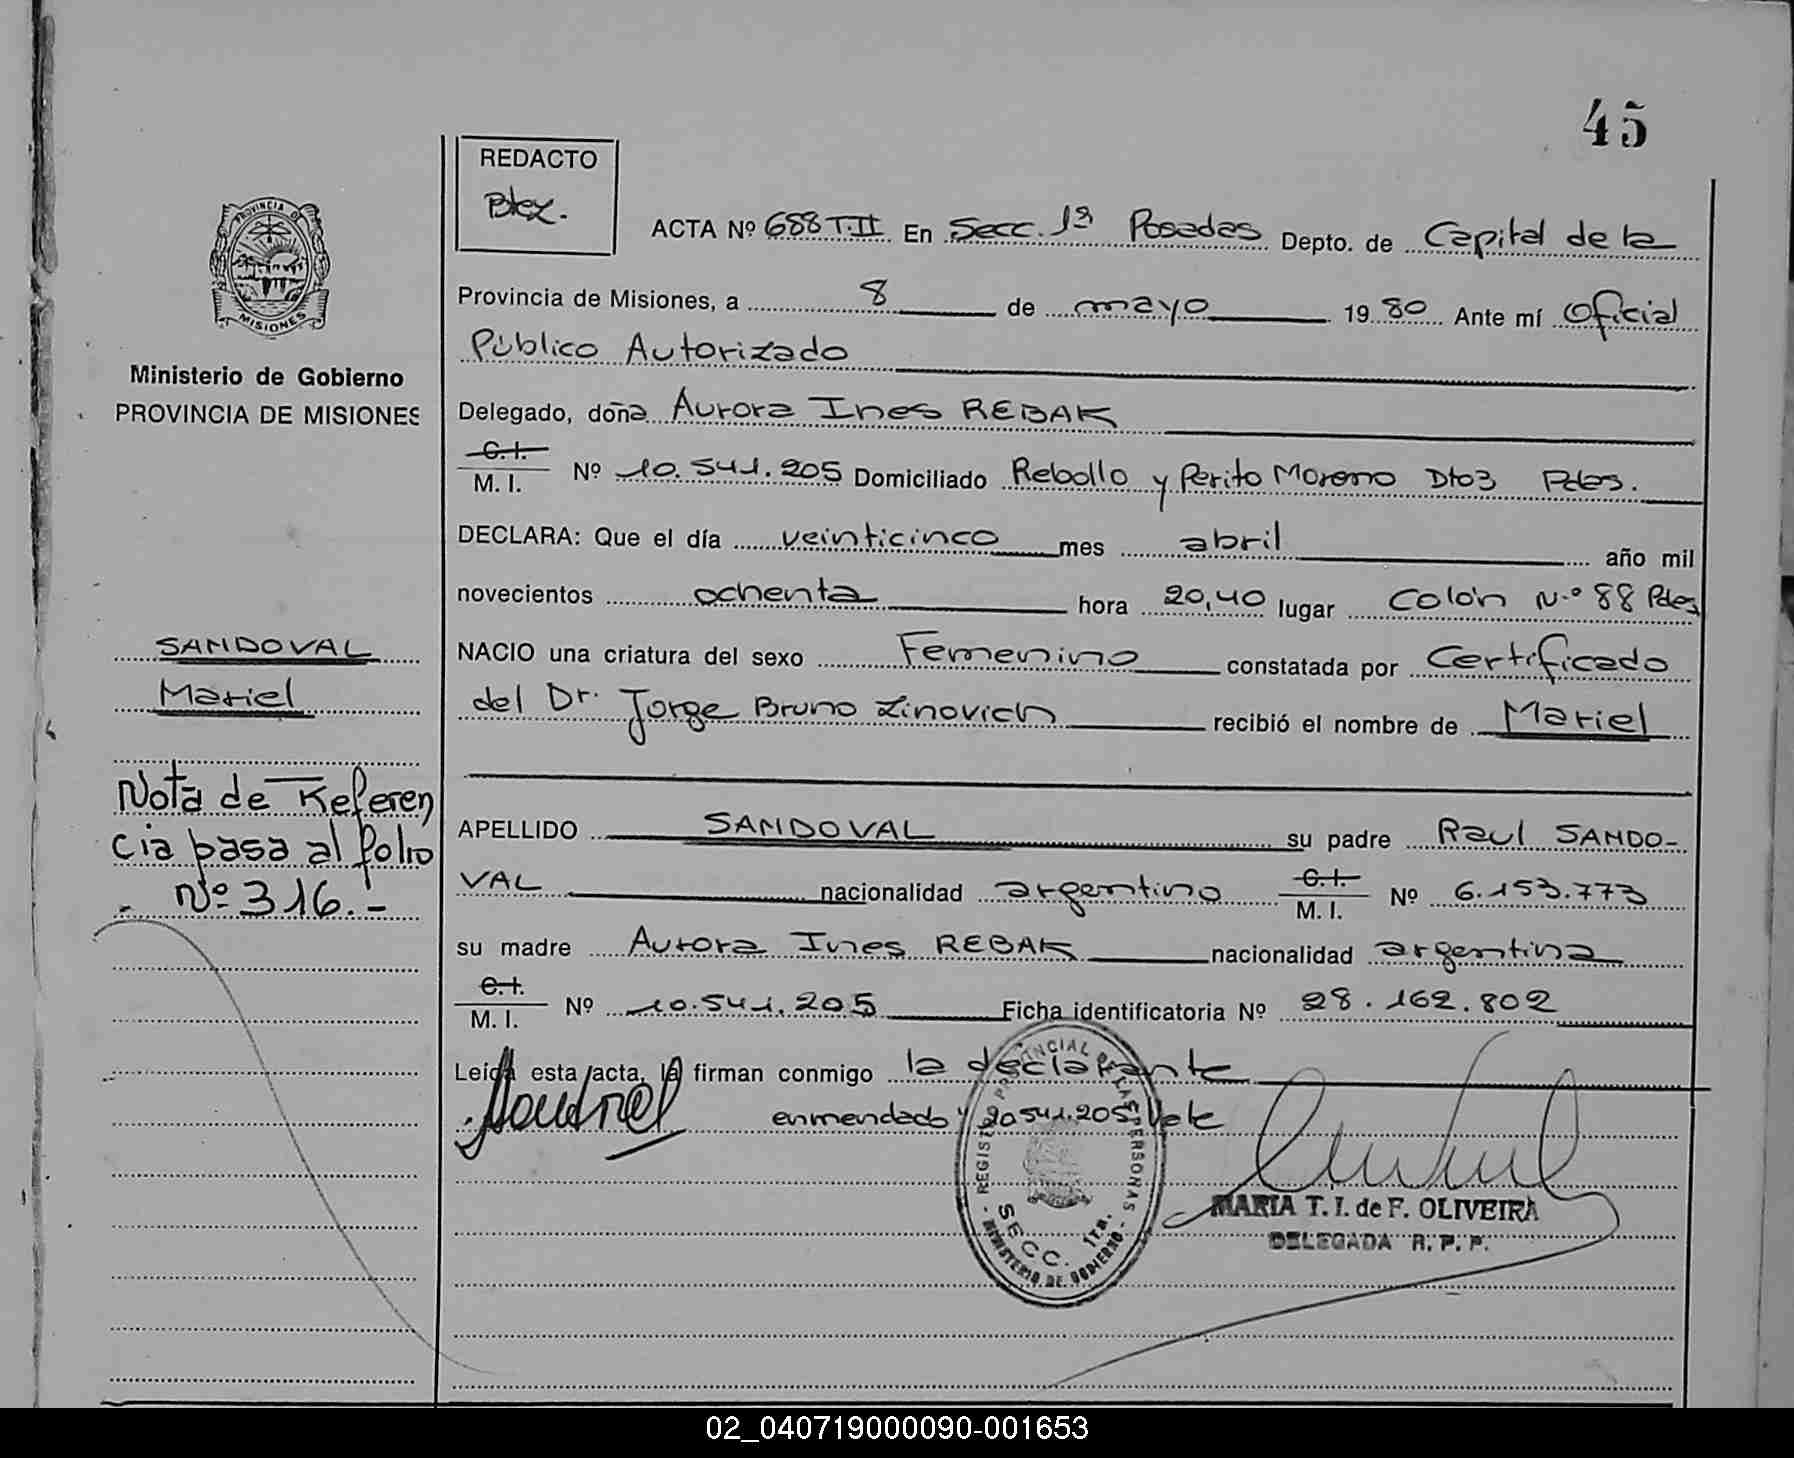 45
REDACTO
PROVINCIA DE
MISIONES
Ministerio de Gobierno
PROVINCIA DE MISIONES
ACTA Nº 688 T.II En Secc. 1ª Posadas Depto. de Capital de la
Provincia de Misiones, a 8 de mayo 1980 Ante mí Oficial
Público Autorizado
Delegado, doña Aurora Ines REBAK
C.I.
M. I. Nº 10.541.205 Domiciliado Rebollo y Perito Moreno Dto3 Pdas.
DECLARA: Que el día veinticinco mes abril año mil
novecientos ochenta hora 20,40 lugar Colón N.º 88 Pdas
NACIO una criatura del sexo Femenino constatada por Certificado
del Dr. Jorge Bruno Zinovich recibió el nombre de Mariel
APELLIDO SANDOVAL su padre Raul SANDO-
VAL nacionalidad argentino C.I. M. I. Nº 6.153.773
su madre Aurora Ines REBAK nacionalidad argentina
C.I.
M. I. Nº 10.541.205 Ficha identificatoria Nº 28.162.802
Leída esta acta, la firman conmigo la declarante
enmendado 20541.205 Vale
SANDOVAL
Mariel
Nota de Referen
cia pasa al folio
Nº 316.-
REGISTRO PROVINCIAL DE LAS PERSONAS
SECC. 1ra.
MINISTERIO DE GOBIERNO
MARIA T. I. de F. OLIVEIRA
DELEGADA R. P. P.
02_040719000090-001653